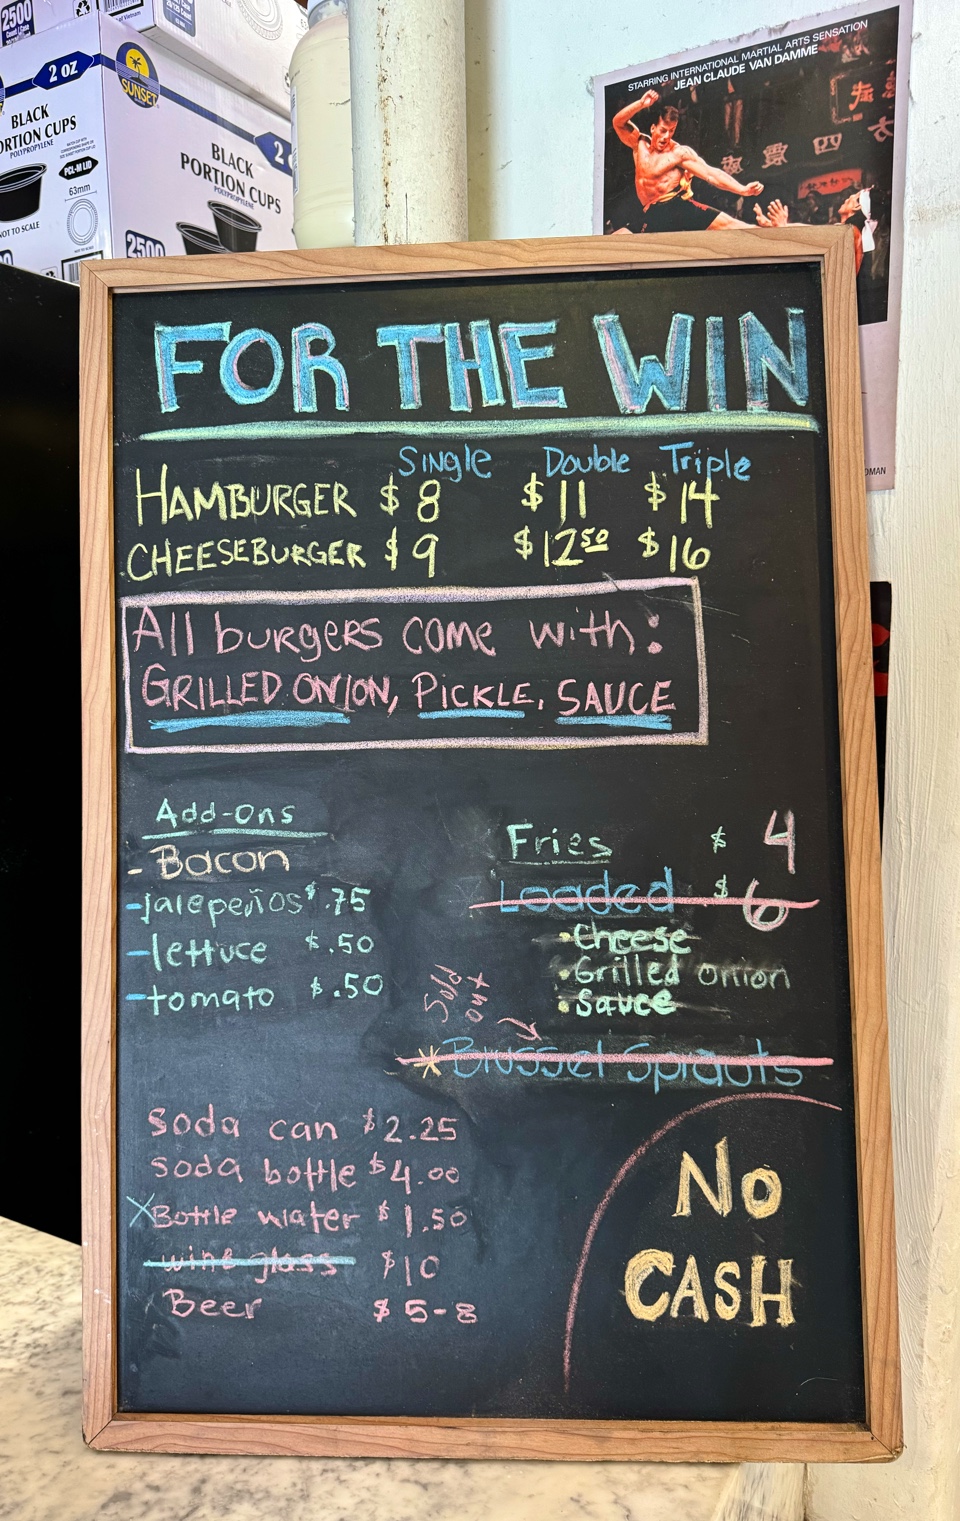 2500
2 oz
BLACK
PORTION CUPS
POLYPROPYLENE
PCL-M LID
63mm
NOT TO SCALE
SUNSET
2
BLACK
PORTION CUPS
POLYPROPYLENE
2500
STARRING INTERNATIONAL MARTIAL ARTS SENSATION
JEAN CLAUDE VAN DAMME
FOR THE WIN
Single Double Triple
HAMBURGER $8 $11 $14
CHEESEBURGER $9 $12.50 $16
All burgers come with:
GRILLED ONION, PICKLE, SAUCE
Add-Ons
- Bacon
-jalepeños $.75
-lettuce $.50
-tomato $.50
Fries $4
Loaded $6
•Cheese
•Grilled onion
•Sauce
Sold out
* Brussel Sprouts
Soda can $2.25
Soda bottle $4.00
X Bottle water $1.50
wine glass $10
Beer $5-8
NO
CASH